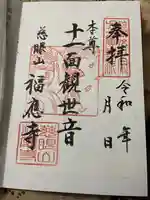 奉拝
令和 年
月 日
本尊
十一面観世音
慈眼山
福應寺